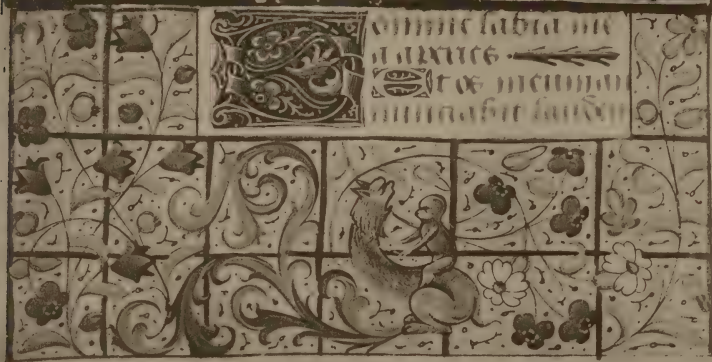 Domine labia me
a aperies
Et os meum an
nunciabit laudem